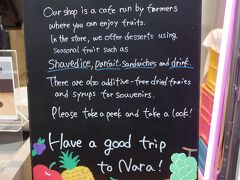 Our shop is a cafe run by farmers
where you can enjoy fruits.
In the store, we offer desserts using
seasonal fruit such as
Shavedice, parfait, sandwiches and drink.
There are also additive-free dried fruits
and syrups for souvenirs.
Please take a peek and take a look!
Have a good trip
to Nara!